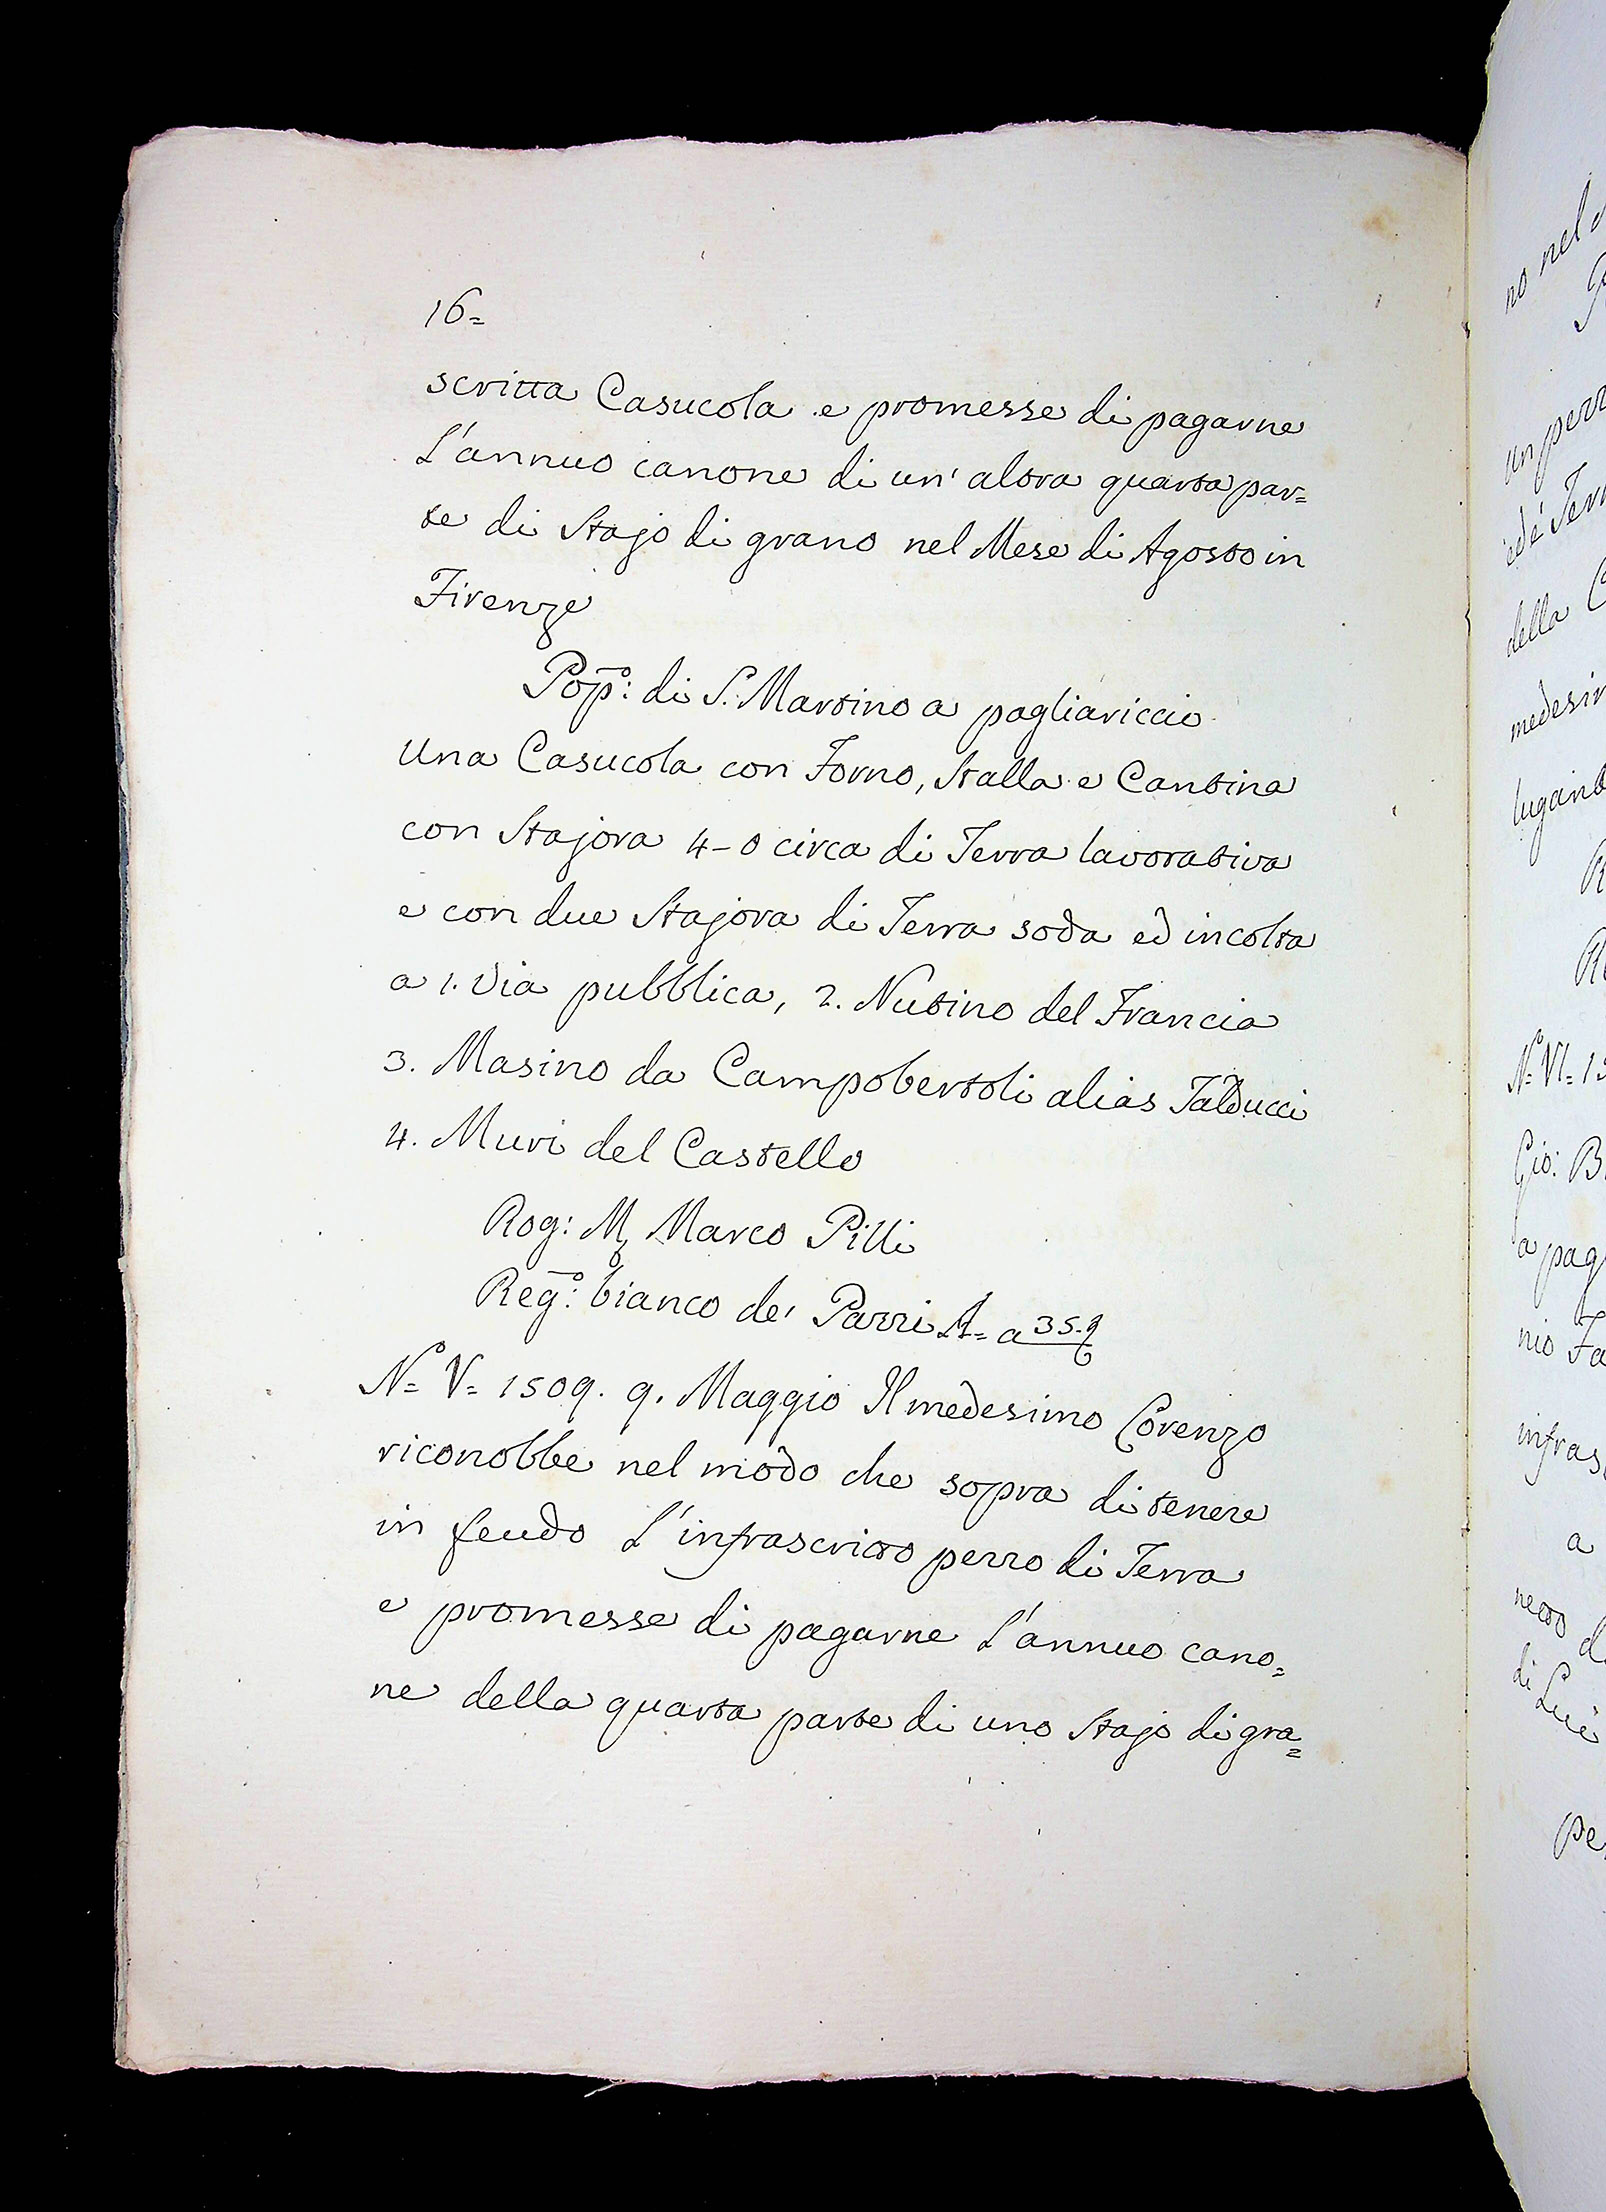 16=
scritta Casucola e promesse di pagarne
l'annuo canone di un' altra quarta par=
te di Stajo di grano nel Mese di Agosto in
Firenze
Pop.o: di S. Martino a pagliariccio
Una Casucola con Forno, Stalla e Cantina
con Stajora 4-0 circa di Terra lavorativa
e con due Stajora di Terra soda ed incolta
a 1. Via pubblica, 2. Nutino del Francia
3. Masino da Campobertoli alias Talducci
4. Muri del Castello
Rog: M. Marco Pilli
Reg.o: bianco de' Pazzi A= a 35.
N= V= 1509. 9. Maggio Il medesimo Lorenzo
riconobbe nel modo che sopra di tenere
in feudo l'infrascritto pezzo di Terra
e promesse di pagarne l'annuo cano=
ne della quarta parte di uno Stajo di gra=
no nel
un pezz
ed é Terr
della C
medesim
lugianb
R
N= VI= 15
Gio: B
a pag
nio Fa
infras
a
netto d
di Luc
pe